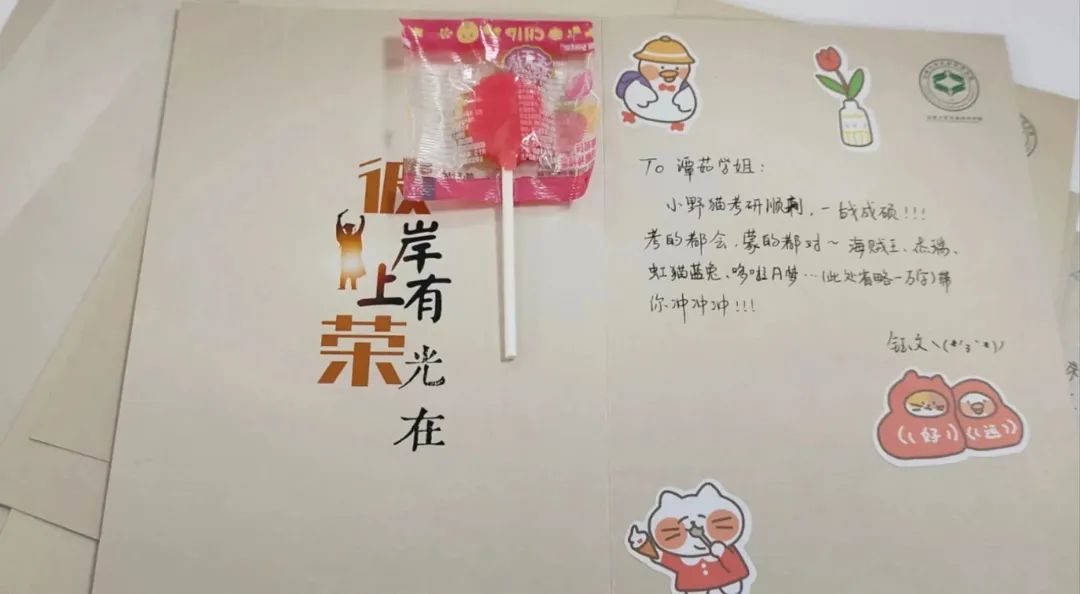 CHIP
彼
岸
上有
荣
光
在
To 谭茹学姐：
小野猫考研顺利，一战成硕!!!
考的都会，蒙的都对～海贼王、杰瑞、
虹猫蓝兔、哆啦A梦…(此处省略一万字)带
你冲冲冲!!!
钰文ヽ(*´з`*)ﾉ
((好)) ((运))